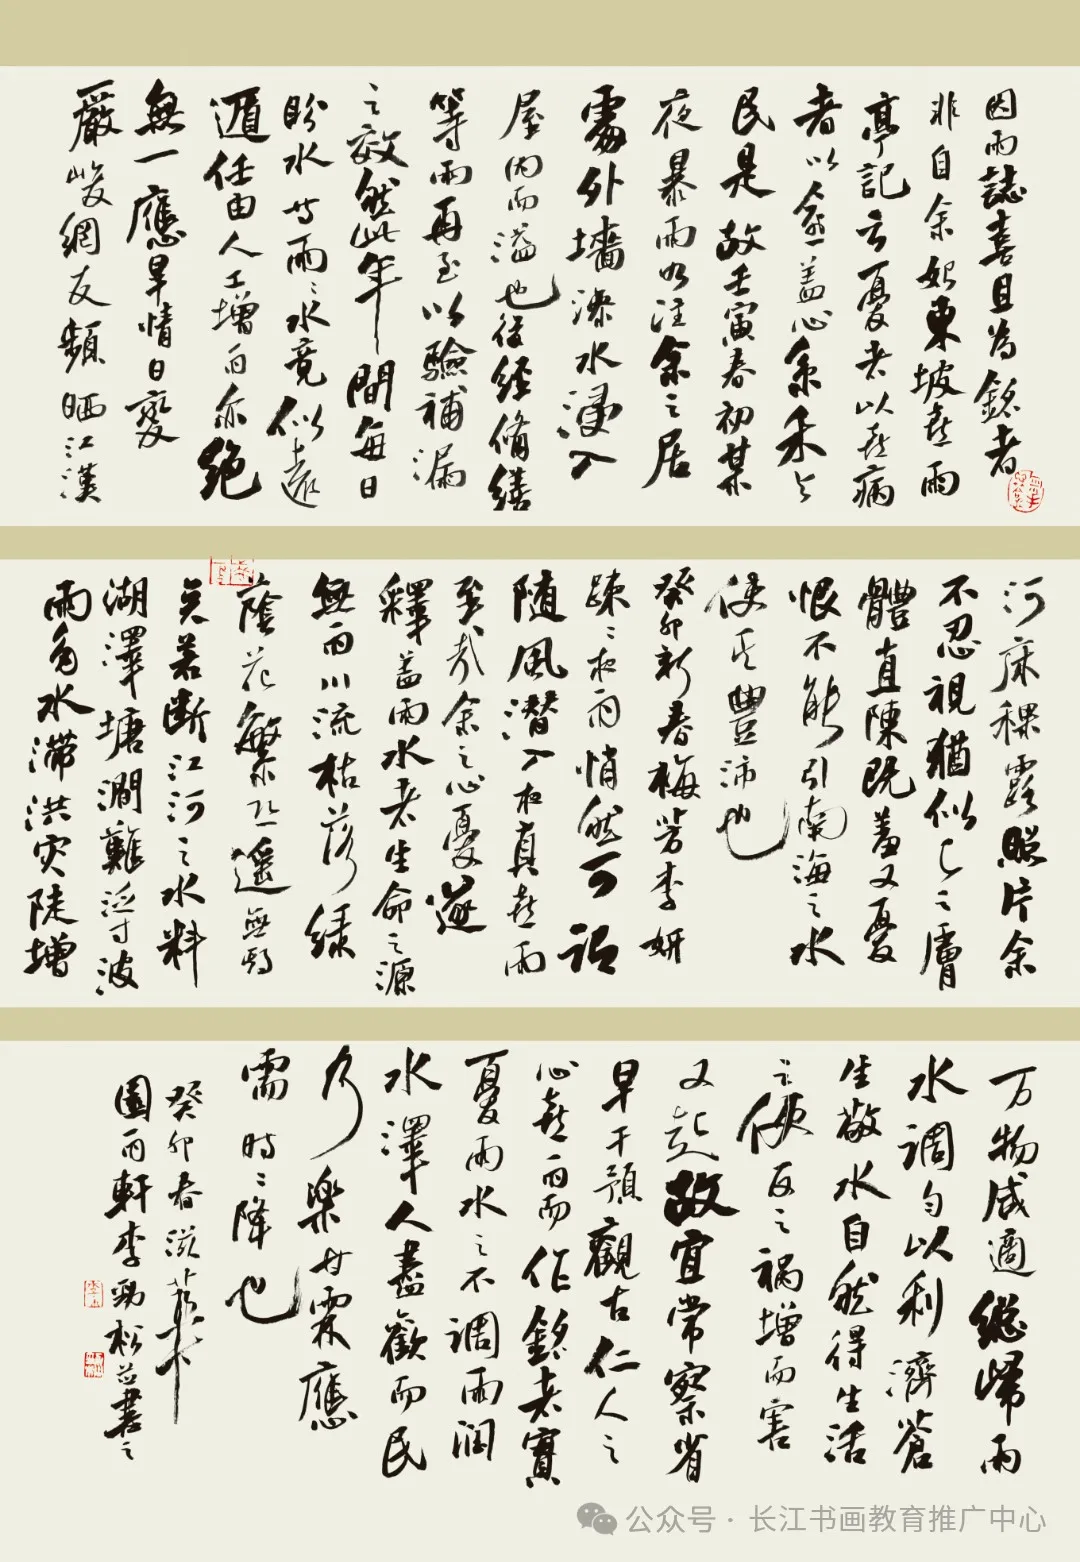 因雨誌喜且為銘者
非自余始東坡喜雨
亭記云憂者以喜病
者以愈蓋心系禾与
民是故壬寅春初某
夜暴雨如注余之居
處外墻滲水浸入
屋内而溢也後經脩繕
等雨再至以驗補漏
之效然此年間每日
盼水雨〻水竟似遠
遁任由人工增雨亦絕
無一應旱情日變
嚴峻網友頻晒江漢
河床稞露照片余
不忍視猶似己之膚
體直陳既羞又憂
恨不能引南海之水
使其豐沛也
癸卯新春梅芳李妍
疎〻夜雨悄然
随風潛入夜真喜雨
至哉余之心憂遂
釋蓋雨水者生命之源
無雨川流枯綠
蔭花繁亦遥無期
矣若斷江河之水料
湖澤塘澗難浮寸波
雨多水滯洪灾陡增
万物咸適總歸雨
水調勻以利濟蒼
生敬水自然得生活
之便反之禍增而害
又起故宜常察省
早干預觀古仁人之
心喜雨而作銘者實
憂雨水之不調雨潤
水澤人盡歡而民
乃樂甘霖應
需時〻降也
癸卯春滋
圃雨軒李勁松並書之
公众号·长江书画教育推广中心